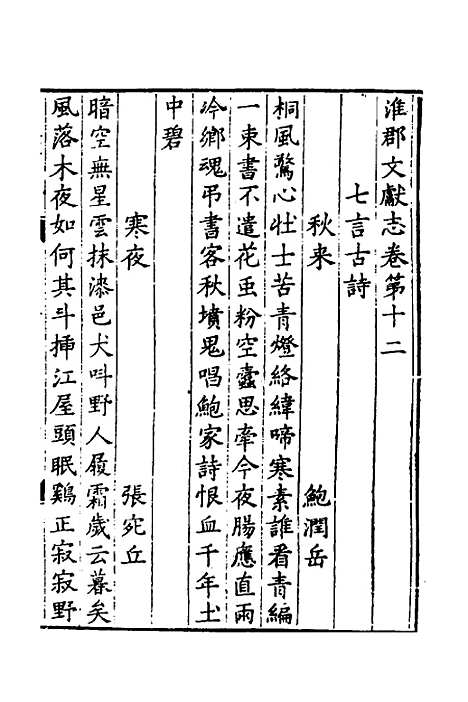 淮郡文獻志卷第十二
七言古詩
秋来 鮑潤岳
桐風驚心壮士苦青燈絡緯啼寒素誰看青編
一束書不遣花虫粉空蠹思牽今夜腸應直雨
冷鄉魂弔書客秋墳鬼唱鮑家詩恨血千年土
中碧
寒夜 張宛丘
暗空無星雲抹漆邑犬吽野人履霜歲云暮矣
風落木夜如何其斗揷江屋頭眠鷄正寂寂野